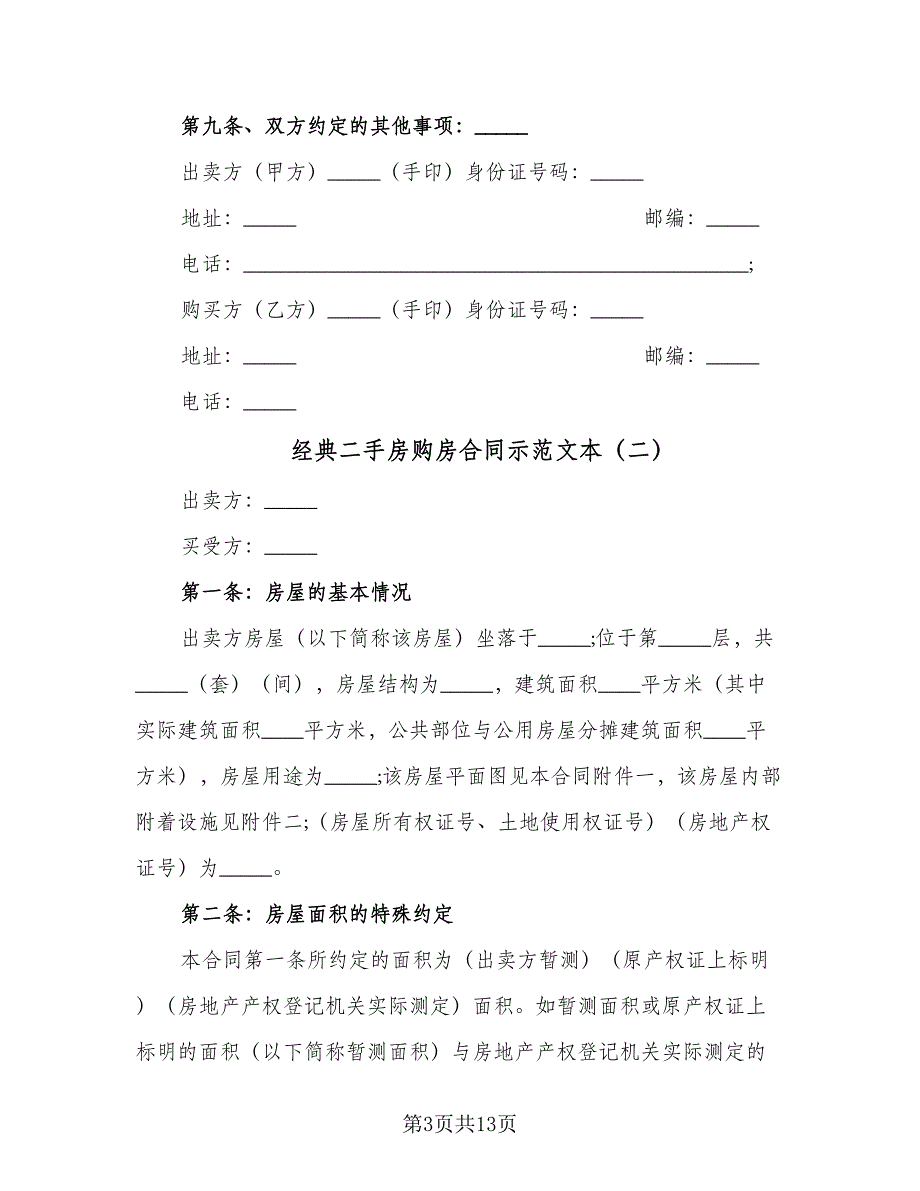 第九条、双方约定的其他事项：_____
出卖方（甲方）_____（手印）身份证号码：_____
地址：_____ 邮编：_____
电话：________________________________________________;
购买方（乙方）_____（手印）身份证号码：_____
地址：_____ 邮编：_____
电话：_____
经典二手房购房合同示范文本（二）
出卖方：_____
买受方：_____
第一条：房屋的基本情况
出卖方房屋（以下简称该房屋）坐落于_____;位于第_____层，共
_____（套）（间），房屋结构为_____，建筑面积____平方米（其中
实际建筑面积____平方米，公共部位与公用房屋分摊建筑面积____平
方米），房屋用途为_____;该房屋平面图见本合同附件一，该房屋内部
附着设施见附件二;（房屋所有权证号、土地使用权证号）（房地产权
证号）为_____。
第二条：房屋面积的特殊约定
本合同第一条所约定的面积为（出卖方暂测）（原产权证上标明
）（房地产产权登记机关实际测定）面积。如暂测面积或原产权证上
标明的面积（以下简称暂测面积）与房地产产权登记机关实际测定的
第3页共13页